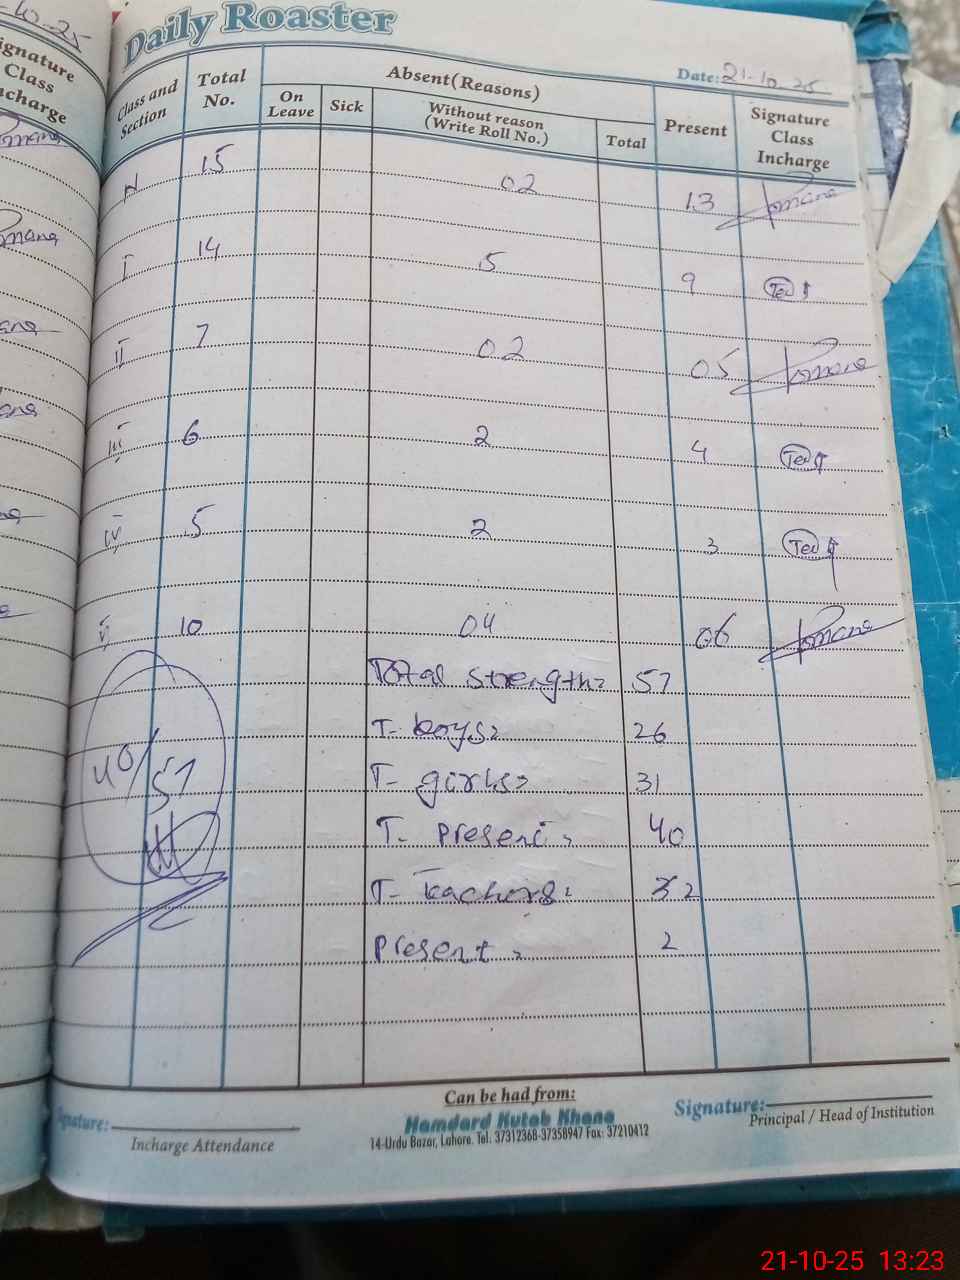 Daily Roaster
Date: 21-10-25
Class and Section
Total No.
Absent(Reasons)
On Leave
Sick
Without reason (Write Roll No.)
Total
Present
Signature Class Incharge
N 15 02 13 Romana
I 14 5 9
II 7 02 05 Romana
III 6 2 4
IV 5 2 3
V 10 04 06 Romana
Total Strength= 57
T- boys= 26
T- girls= 31
T- Present= 40
T- teachers= 2
Present = 2
40/57
Signature:
Incharge Attendance
Can be had from:
Hamdard Kutab Khana
14-Urdu Bazar, Lahore. Tel: 37312368-37358947 Fax: 37210412
Signature:
Principal / Head of Institution
21-10-25 13:23